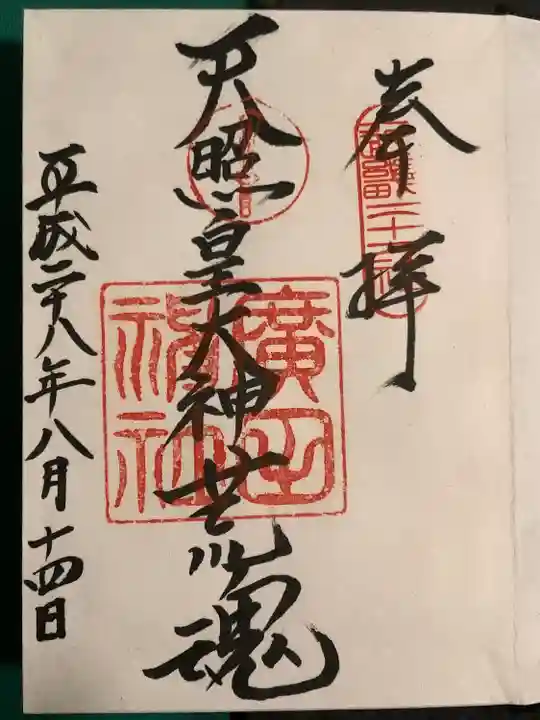 奉拝
天照皇大神荒魂
廣田神社
平成二十八年八月十四日